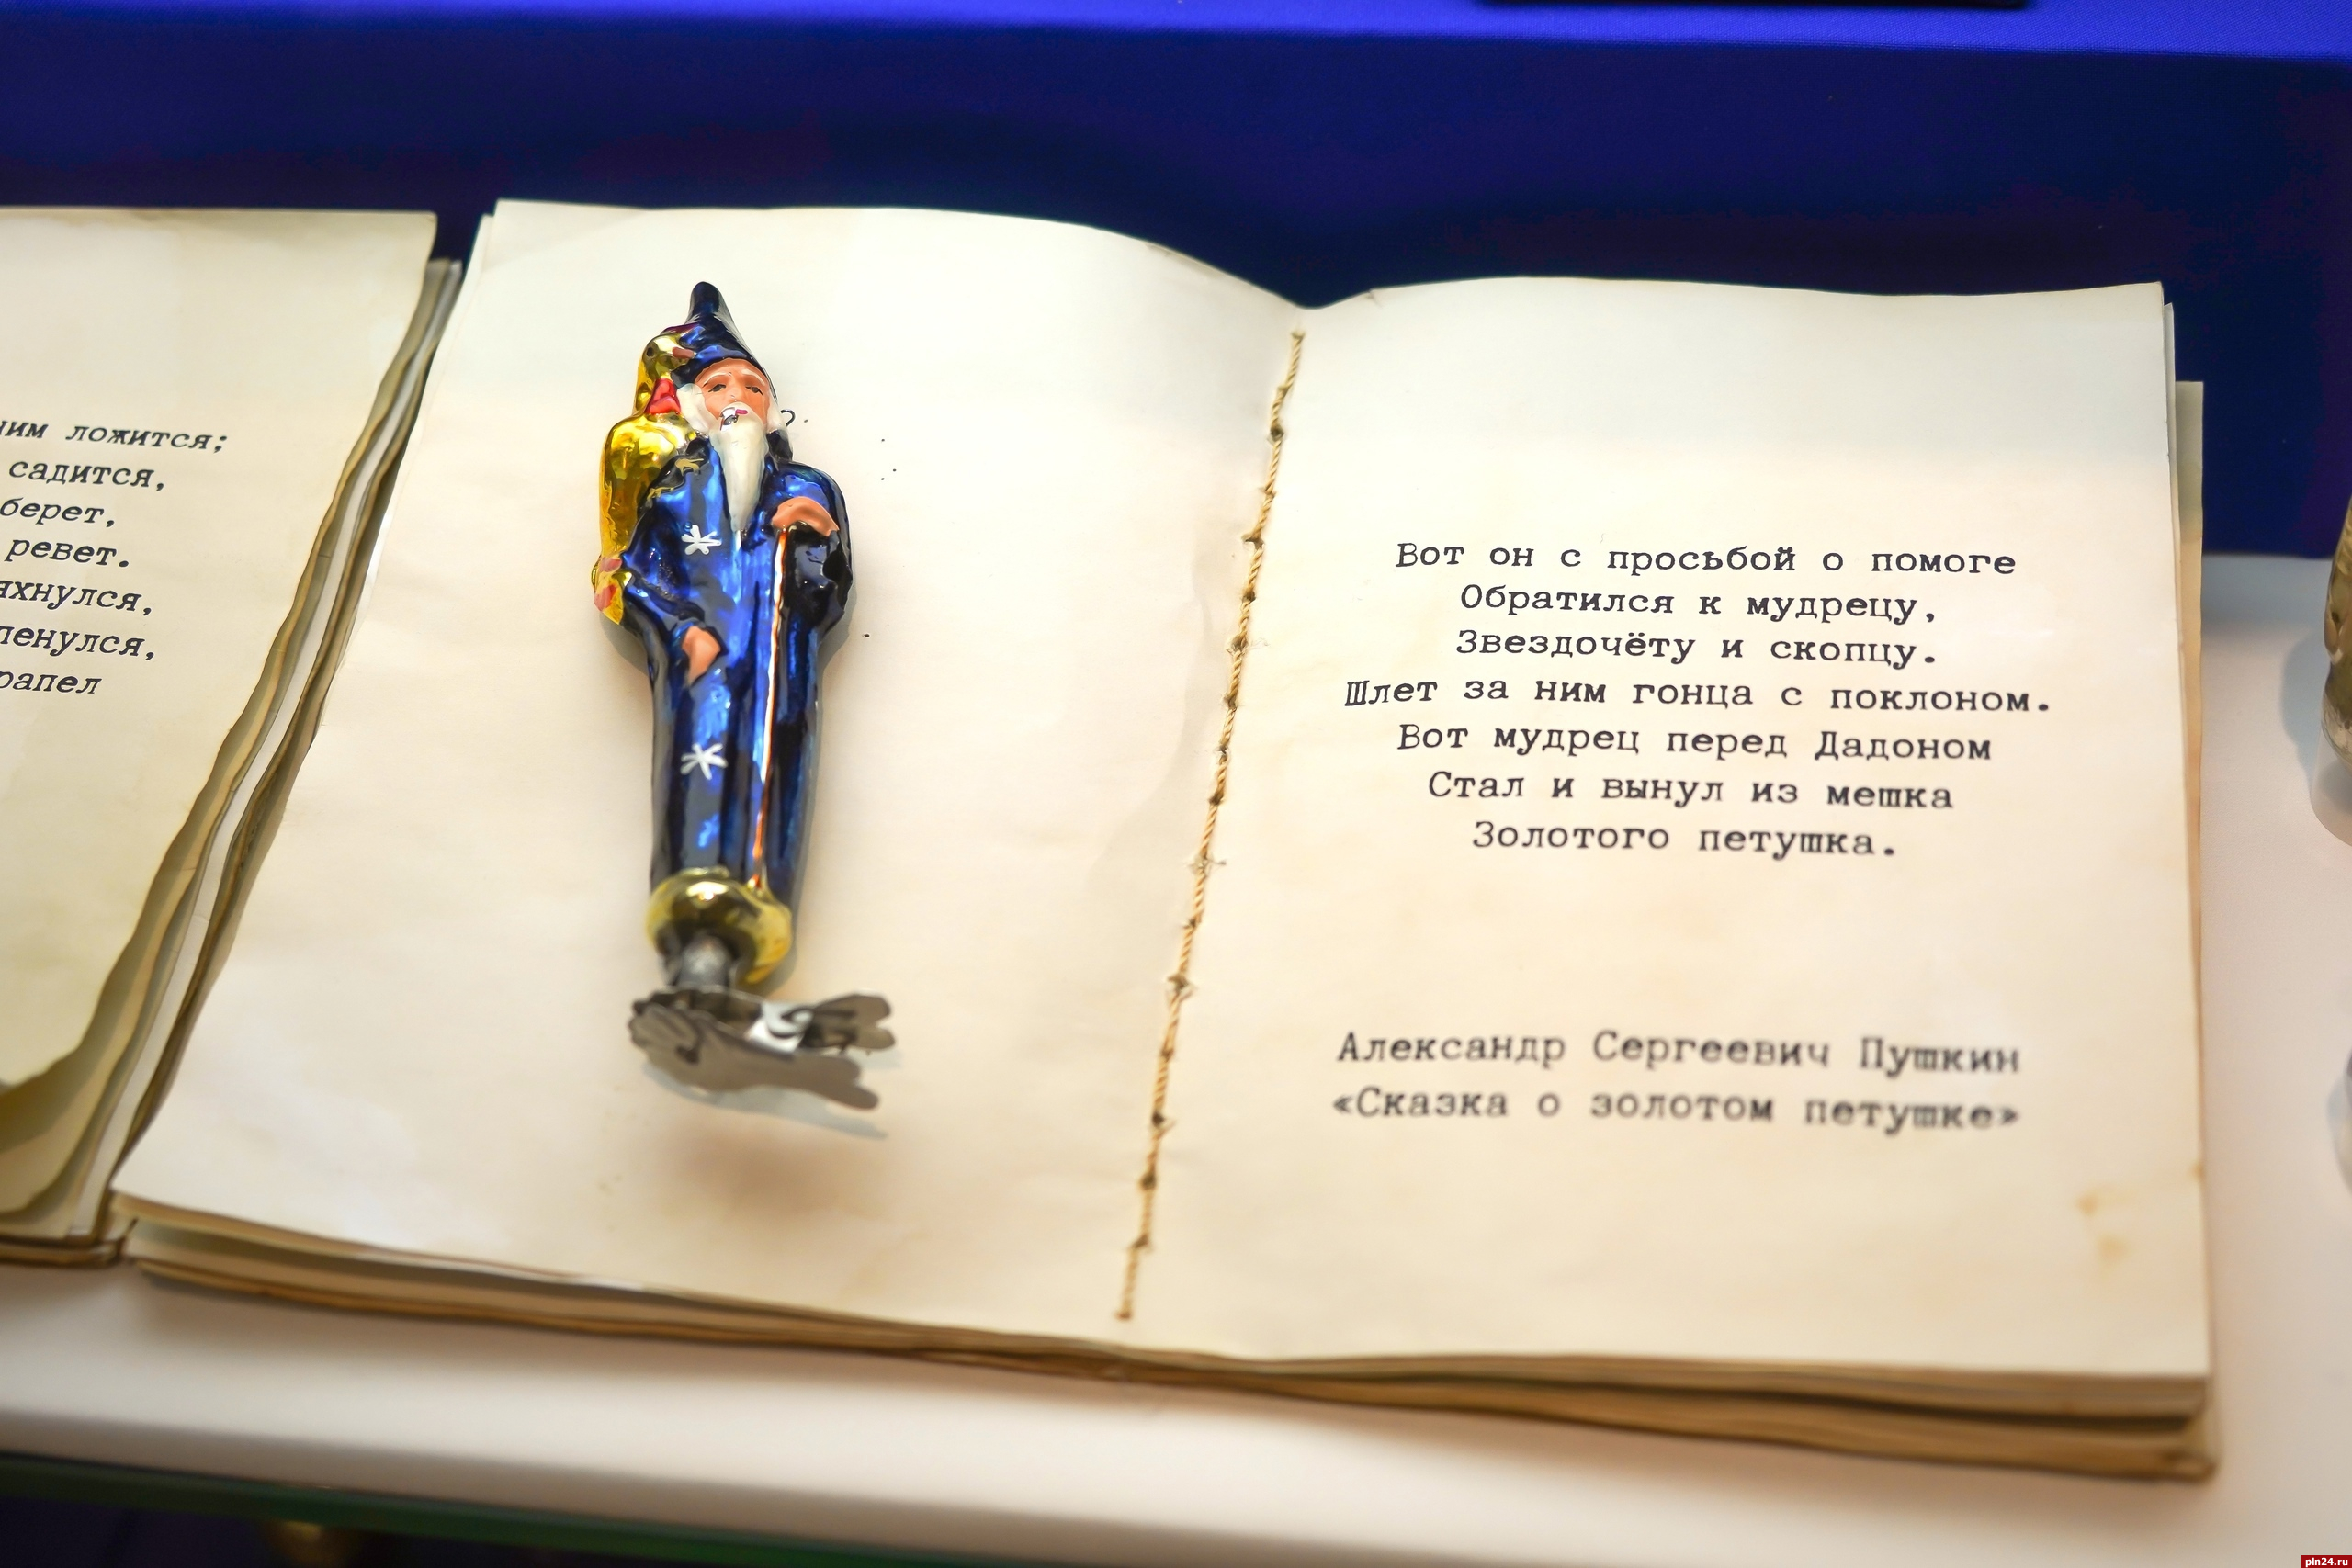 ним ложится;
садится,
берет,
ревет.
яхнулся,
пенулся,
рапел
Вот он с просьбой о помоге
Обратился к мудрецу,
Звездочёту и скопцу.
Шлет за ним гонца с поклоном.
Вот мудрец перед Дадоном
Стал и вынул из мешка
Золотого петушка.
Александр Сергеевич Пушкин
«Сказка о золотом петушке»
pln24.ru